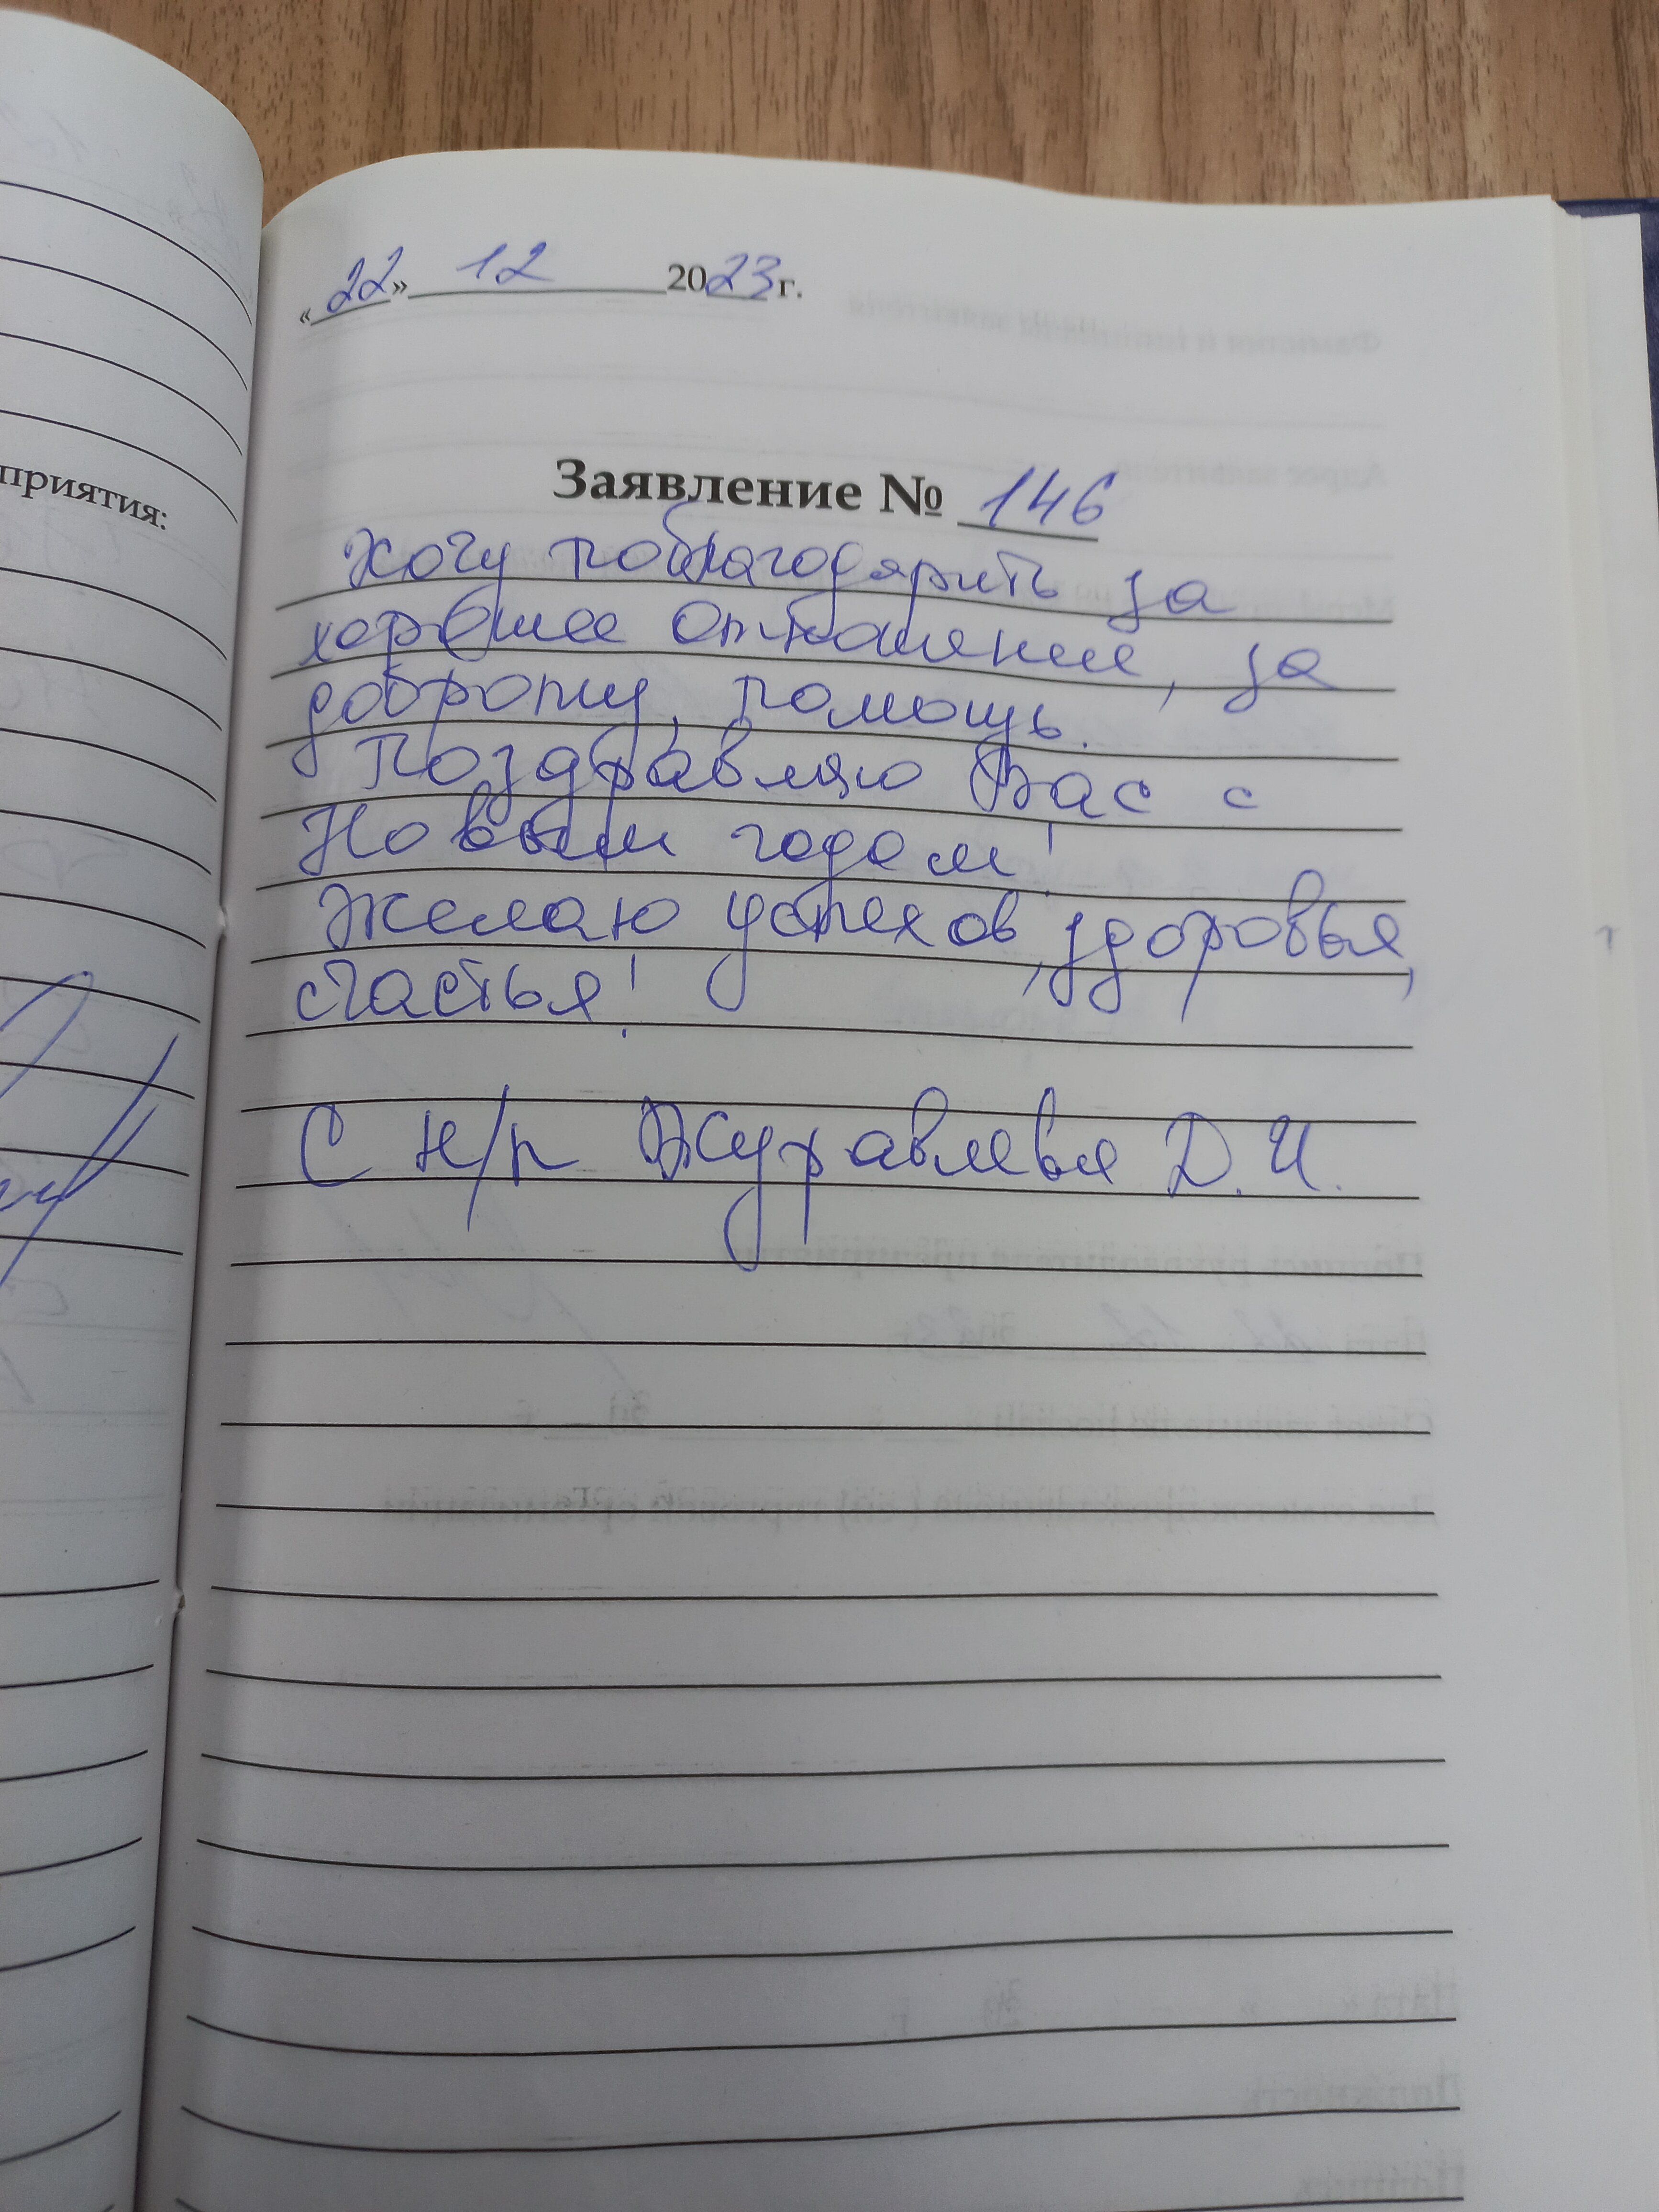 приятия:
«22» 12 2023 г.
Заявление № 146
Хочу поблагодарить за
хорошее отношение, за
доброту, помощь.
Поздравляю Вас с
Новым годом!
Желаю успехов, здоровья,
счастья!
С н/п Журавлева Д.И.